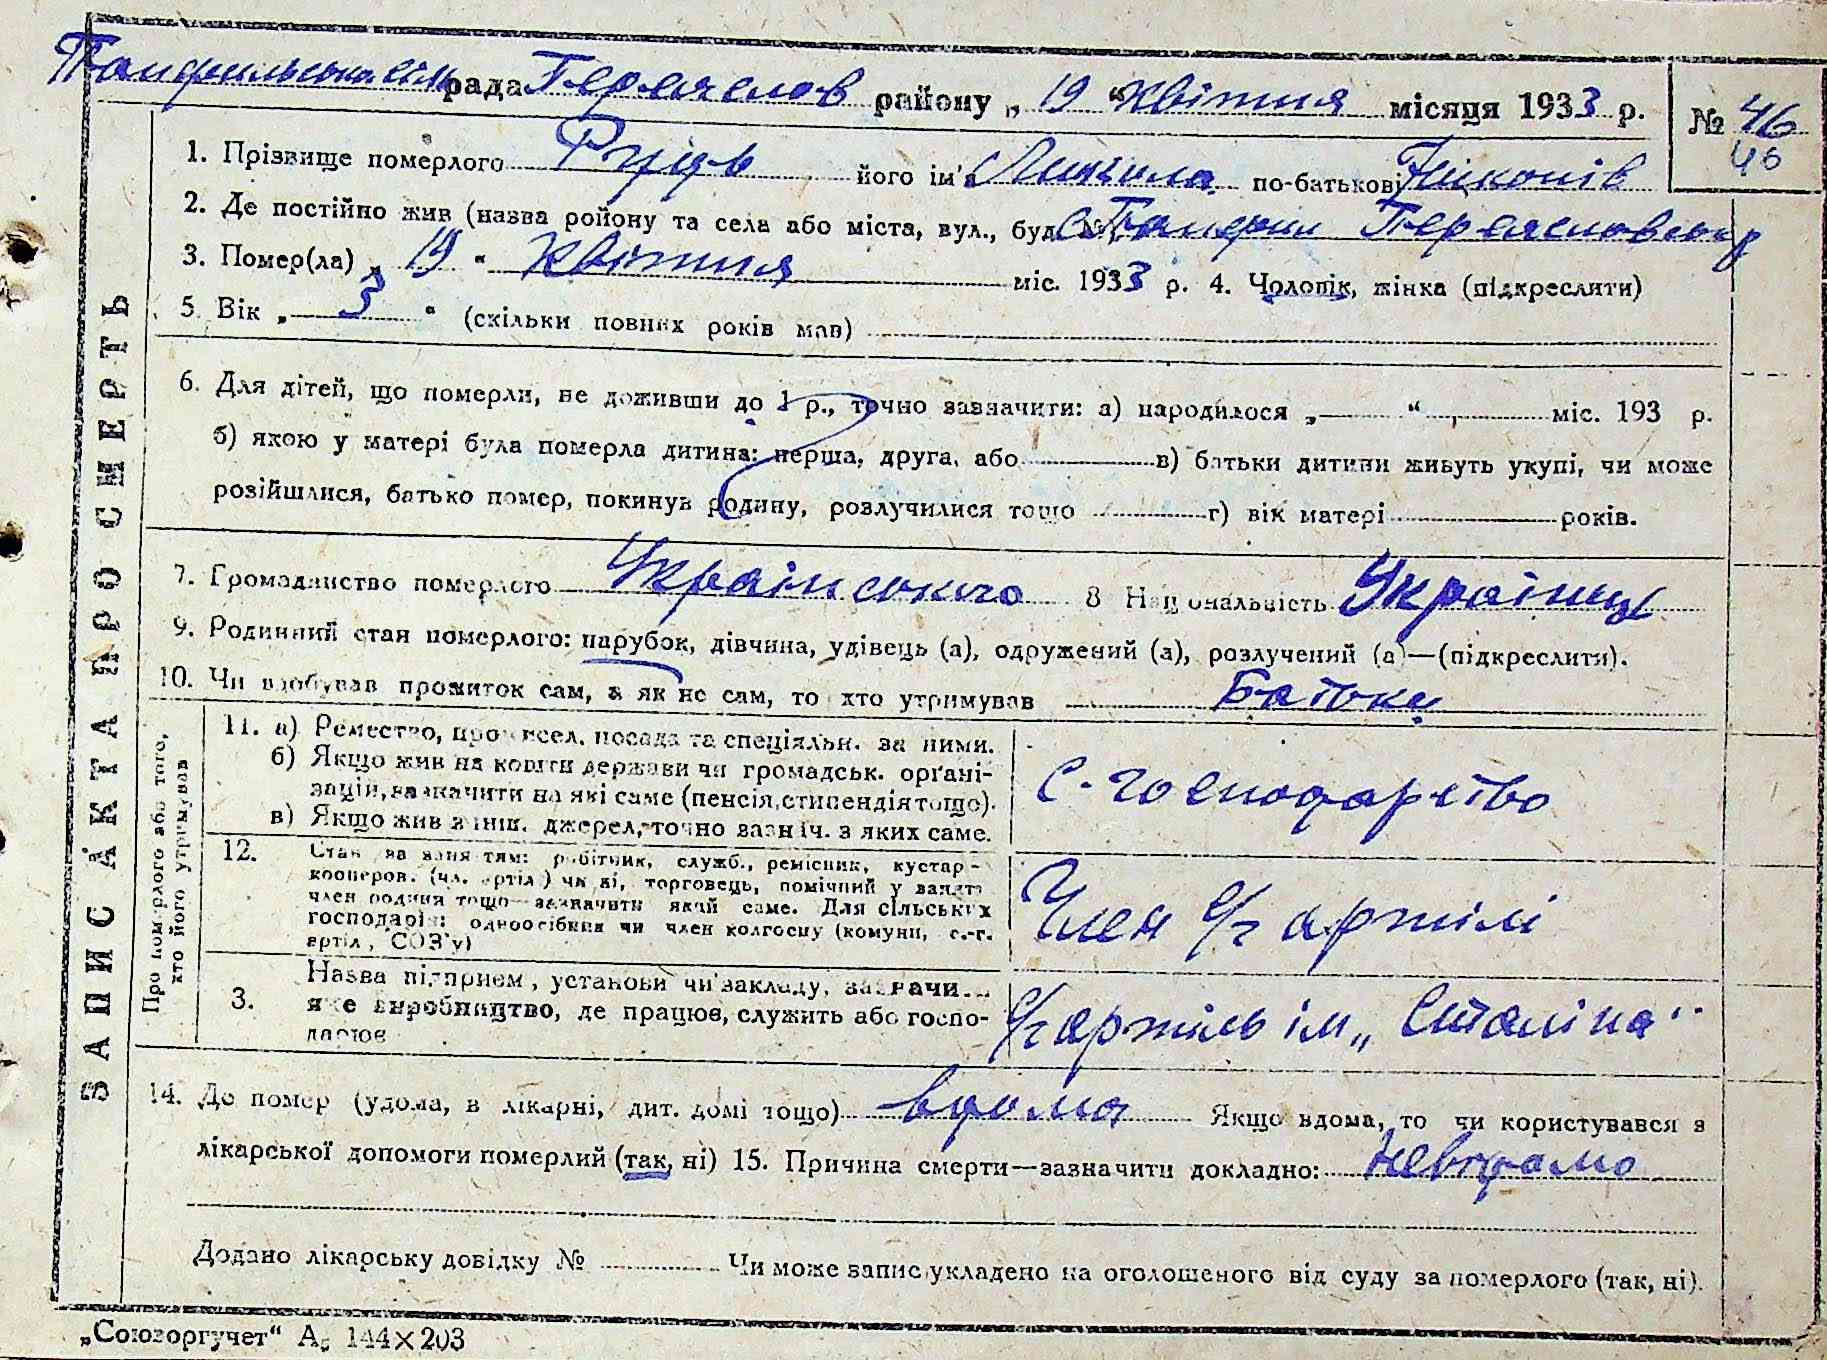 Панфильська сіль рада Переяслов району „ 19 “ Квітня місяця 1933 р. № 46
46
1. Прізвище померлого Рудь його ім'я по-батькові Никонів
2. Де постійно жив (назва ройону та села або міста, вул., буд. №) с Панфили Переяславськ
3. Помер(ла) „ 19 “ Квітня міс. 1933 р. 4. Чоловік, жінка (підкреслити)
5. Вік „ 3 “ (скільки повних років мав)
6. Для дітей, що померли, не доживши до 1 р., точно зазначити: а) народилося „ “ міс. 193 р.
б) якою у матері була померла дитина: перша, друга, або в) батьки дитини живуть укупі, чи може
розійшлися, батько помер, покинув родину, розлучилися тощо г) вік матері років.
7. Громадянство померлого Українського 8 Національність Українець
9. Родинний стан померлого: парубок, дівчина, удівець (а), одружений (а), розлучений (а)—(підкреслити).
10. Чи здобував прожиток сам, а як не сам, то хто утримував Батьку
ЗАПИС АКТА ПРО СМЕРТЬ
Про померлого або того,
хто його утримував
11. а) Ремество, промисел, посада та спеціяльн. за ними.
б) Якщо жив на кошти держави чи громадськ. органі-
зацій, зазначити на які саме (пенсія, стипендія тощо).
в) Якщо жив з інш. джерел, точно зазнач. з яких саме.
С-господарство
12. Стан за заняттям: робітник, служб., ремісник, кустар-
кооперов. (чл. артілі) чи ні, торговець, помічний у занятт
член родини тощо—зазначити який саме. Для сільських
господарів: одноосібник чи член колгоспу (комуни, с.-г.
артіл, СОЗ'у)
Член с/г артілі
3. Назва підприєм, установи чи закладу, зазначи...
яке виробництво, де працює, служить або госпо-
дарює
с/г артіль ім „Сталіна"
14. Де помер (удома, в лікарні, дит. домі тощо) вдома Якщо вдома, то чи користувався з
лікарської допомоги померлий (так, ні) 15. Причина смерти—зазначити докладно: Невідомо
Додано лікарську довідку № Чи може запис укладено на оголошеного від суду за померлого (так, ні).
„Союзоргучет“ А5 144×203